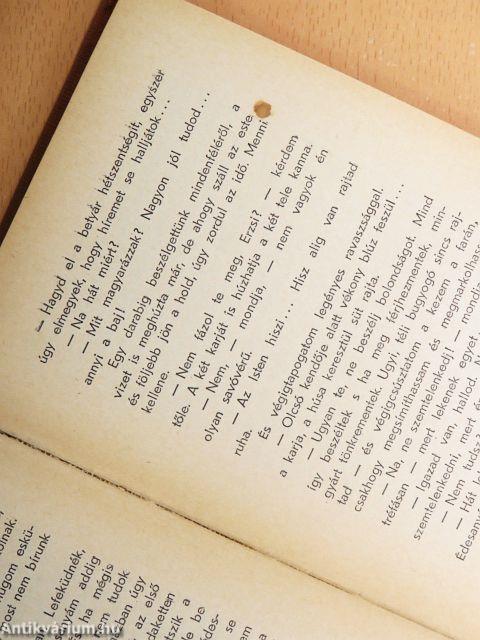 — Hagyd el a betyár hétszentségit, egyszer
úgy elmegyek, hogy híremet se halljátok...
— Na hát miért?
— Mit magyarázzak? Nagyon jól tudod...
annyi a baj!
Egy darabig beszélgettünk mindenféléről, a
vizet is meghúzta már, de ahogy száll az este
és följebb jön a hold, úgy zordul az idő. Menni
kellene.
— Nem fázol te meg, Erzsi? — kérdem
tőle. A két karját is huzhatja a két tele kanna.
— Nem, — mondja, — nem vagyok én
olyan savóvérű.
— Az Isten hiszi... Hisz alig van rajtad
ruha.
És végigtapogatom legényes ravaszsággal.
— Olcsó kendője alatt vékony blúz feszül...
a karja, a húsa keresztül süt rajta.
— Ugyan te, ne beszélj bolondságot. Mind
így beszéltek s ha meg férjhezmentek, min-
gyárt tönkrementek. Ugyi, téli bugyogó sincs raj-
tad — és végigcsúsztatom a kezem a farán,
csakhogy megsimíthassam és megmarkolhass
— Na, ne szemtelenkedj! — mondja
tréfásan — mert lekenek egyet
— Igazad van, hallod. N
szemtelenkedni, mert é
— Nem tudsz?
— Hát le
Édesany
oinak.
húgom eskü-
post nem bírunk
Lefeküdnék,
rám addig
ha mégis
m tudok
ban úgy
az első
daketten
tszik a
te be
édes-
se
Antikvárium.hu